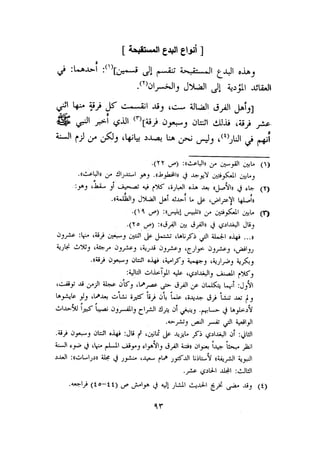 [ أنواع البدع المستقبحة ]
وهذه البدع المستقبحة تنقسم إلى قسمين](١): أحدهما: في
العقائد المؤدية إلى الضلال والخسران(٢).
[وأهل الفرق الضالة ست، وقد انقسمت كل فرقة منها اثني
عشر فرقة، فذلك اثنتان وسبعون فرقة](٣) الذي أخبر النبي ﷺ
أنهم في النار(٤)، وليس نحن هنا بصدد بيانها، ولكن من لزم السنة
(١) مابين القوسين من «الباعث»: (ص ٢٢).
ومابين المعكوفتين لايوجد في «المخطوط». وهو استدراك من «الباعث».
(٢) جاء في «الأصل» بعد هذه العبارة، كلام فيه تصحيف أو سقط، وهو:
«أصلها الإعتراض، على ما أحدثه أهل الضلال والظلمة».
(٣) مابين المعكوفتين من «تلبيس إبليس»: (ص ١٩).
وقال البغدادي في «الفرق بين الفرق»: (ص ٢٥)
«... فهذه الجملة التي ذكرناها، تشتمل على اثنتين وسبعين فرقة، منها: عشرون
روافض، وعشرون خوارج، وعشرون قدرية، وعشرون مرجئة، وثلاث نجارية
وبكرية وضرارية، وجهمية وكرامية، فهذه اثنتان وسبعون فرقة».
وكلام المصنف والبغدادي، عليه المؤاخذات التالية:
الأول: أنهما يتكلمان عن الفرق حتى عصرهما، وكأن عجلة الزمن قد توقفت،
ولم تعد تنشأ فرق جديدة، علماً بأن فرقاً كثيرة نشأت بعدهما، ولو عايشوها
لأدخلوها في حسابهم. وينبغي أن يترك الشراح والمفسرون نصيباً كبيراً للأحداث
الواقعية التي تفسر النص وتشرحه.
الثاني: أن البغدادي ذكر مايزيد على ثمانين، ثم قال: فهذه اثنتان وسبعون فرقة.
انظر مبحثاً جيداً بعنوان «فتنة الفرق والأهواء وموقف المسلم منها، في ضوء السنة
النبوية الشريفة» لأستاذنا الدكتور همام سعيد، منشور في مجلة «دراسات»: العدد
الثالث: المجلد الحادي عشر.
(٤) وقد مضى تخريج الحديث المشار إليه في هوامش ص (٤٤-٤٥) فراجعه.
٩٣